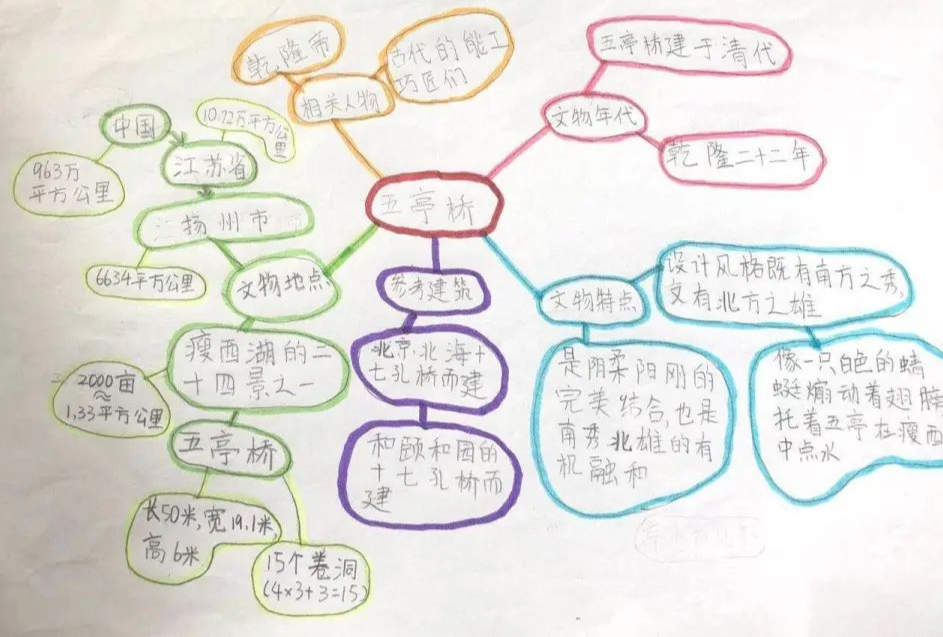 五亭桥
相关人物
乾隆帝
古代的能工
巧匠们
文物年代
五亭桥建于清代
乾隆二十二年
文物地点
扬州市
6634平方公里
江苏省
10.72万平方公
里
中国
963万
平方公里
瘦西湖的二
十四景之一
2000亩
≈
1.33平方公里
五亭桥
长50米,宽19.1米,
高6米
15个卷洞
(4×3+3=15)
参考建筑
北京北海十
七孔桥而建
和颐和园的
十七孔桥而
建
文物特点
设计风格既有南方之秀,
又有北方之雄
是阴柔阳刚的
完美结合,也是
南秀北雄的有
机融和
像一只白色的蜻
蜓煽动着翅膀
托着五亭在瘦西
中点水